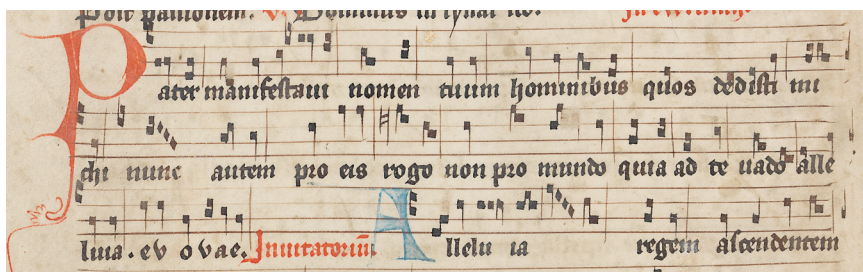 Post passionem. V Dominus in
Pater manifestaui nomen tuum hominibus quos dedisti mi
chi nunc autem pro eis rogo non pro mundo quia ad te uado alle
luia. ev ovae. Inuitatorium. Allelu ia regem ascendentem